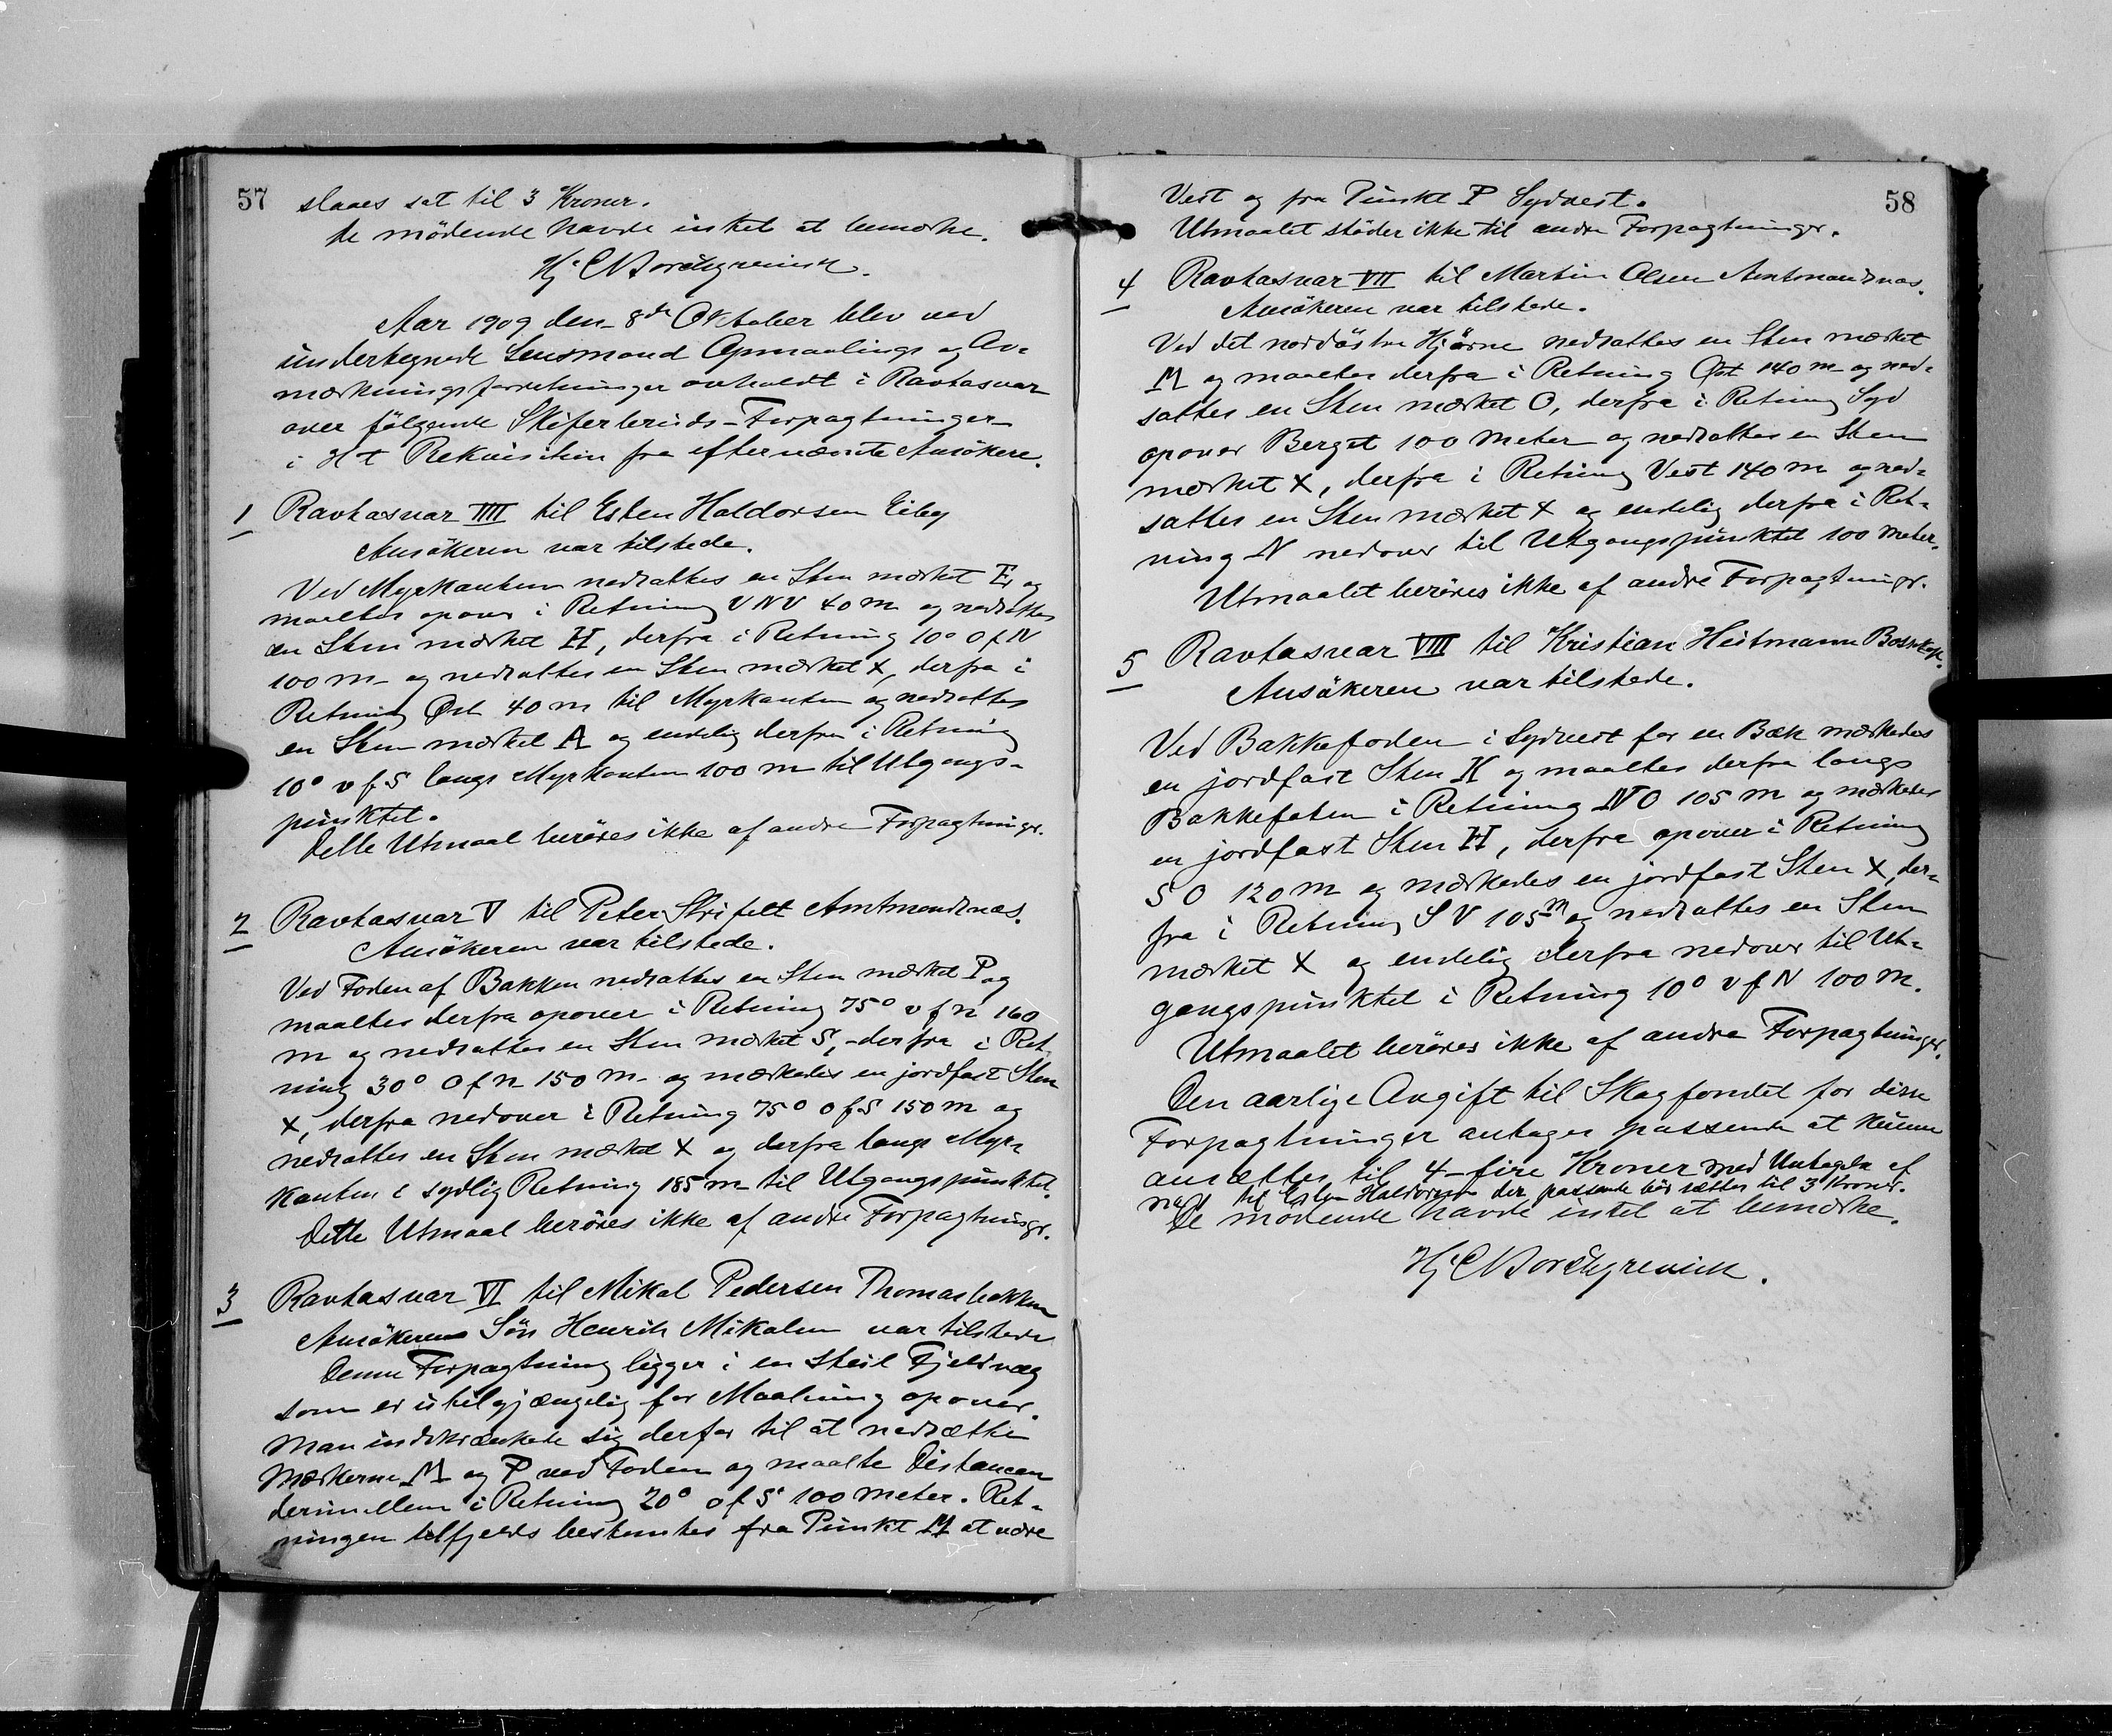 57
slaaes sat til 3 Kroner.
De mødende havde intet at bemærke.
Hj. C Borchgrevink.
Aar 1909 den 8de Oktober blev ved
undertegnede Lensmand Opmaalings og Av-
mærkningsforretninger avholdt i Ravtasvar
over følgende Skiferbruds-Forpagtninger
i H t Rekvisition fra efternævnte Ansøkere.
1 Ravtasvar IIII til Esten Haldorsen Eiby
Ansøkeren var tilstede.
Ved Myrkanten nedsattes en Sten mærket E, og
maaltes opover i Retning VNV 40 m og nedsattes
en Sten mærket H, derfra i Retning 10° O f N
100 m og nedsattes en Sten mærket x, derfra i
Retning Øst 40 m til Myrkanten og nedsattes
en Sten mærket A og endelig derfra i Retning
10° v f S langs Myrkanten 100 m til Utgangs-
punktet.
Dette Utmaal berøres ikke af andre Forpagtninger.
2 Ravtasvar V til Peter Strifelt Amtmandsnæs.
Ansøkeren var tilstede.
Ved Foden af Bakken nedsattes en Sten mærket P og
maaltes derfra opover i Retning 75° v f n 160
m og nedsattes en Sten mærket S, derfra i Ret-
ning 30° O f n 150 m og mærkedes en jordfast Sten
x, derfra nedover i Retning 75° o f S 150 m og
nedsattes en Sten mærket x og derfra langs Myr-
kanten i sydlig Retning 185 m til Utgangspunktet.
Dette Utmaal berøres ikke af andre Forpagtninger.
3 Ravtasvar VI til Mikal Pedersen Thomasbakken
Ansøkerens Søn Henrik Mikalsen var tilstede
Denne Forpagtning ligger i en steil Fjeldvæg
som er utilgjængelig for Maaling opover.
Man indskrænkede sig derfor til at nedsætte
Mærkerne M og P ved Foden og maalte Distancen
derimellem i Retning 20° o f S 100 meter. Ret-
ningen tilfjelds bestemtes fra Punkt M at være
58
Vest og fra Punkt P Sydvest.
Utmaalet støder ikke til andre Forpagtninger.
4 Ravtasvar VII til Martin Olsen Amtmandsnæs.
Ansøkeren var tilstede.
Ved det nordøstre Hjørne nedsattes en Sten mærket
M og maaltes derfra i Retning Øst 140 m og ned-
sattes en Sten mærket O, derfra i Retning Syd
opover Berget 100 meter og nedsattes en Sten
mærket x, derfra i Retning Vest 140 m og ned-
sattes en Sten mærket x og endelig derfra i Ret-
ning N nedover til Utgangspunktet 100 meter.
Utmaalet berøres ikke af andre Forpagtninger.
5 Ravtasvar VIII til Kristian Heitmann Bossekop.
Ansøkeren var tilstede.
Ved Bakkefoden i Sydvest for en Bæk mærkedes
en jordfast Sten K og maaltes derfra langs
Bakkefoten i Retning NO 105 m og mærkedes
en jordfast Sten H, derfra opover i Retning
S O 120 m og mærkedes en jordfast Sten x, der-
fra i Retning S V 105 m og nedsattes en Sten
mærket x og endelig derfra nedover til Ut-
gangspunktet i Retning 10° v f N 100 m.
Utmaalet berøres ikke af andre Forpagtninger.
Den aarlige Avgift til Skogfondet for disse
Forpagtninger antages passende at kunne
ansættes til 4-fire Kroner med Undtagelse af
til Esten Haldorsen der passende bør sættes til 3 Kroner.
De mødende havde intet at bemærke.
Hj. C Borchgrevink.